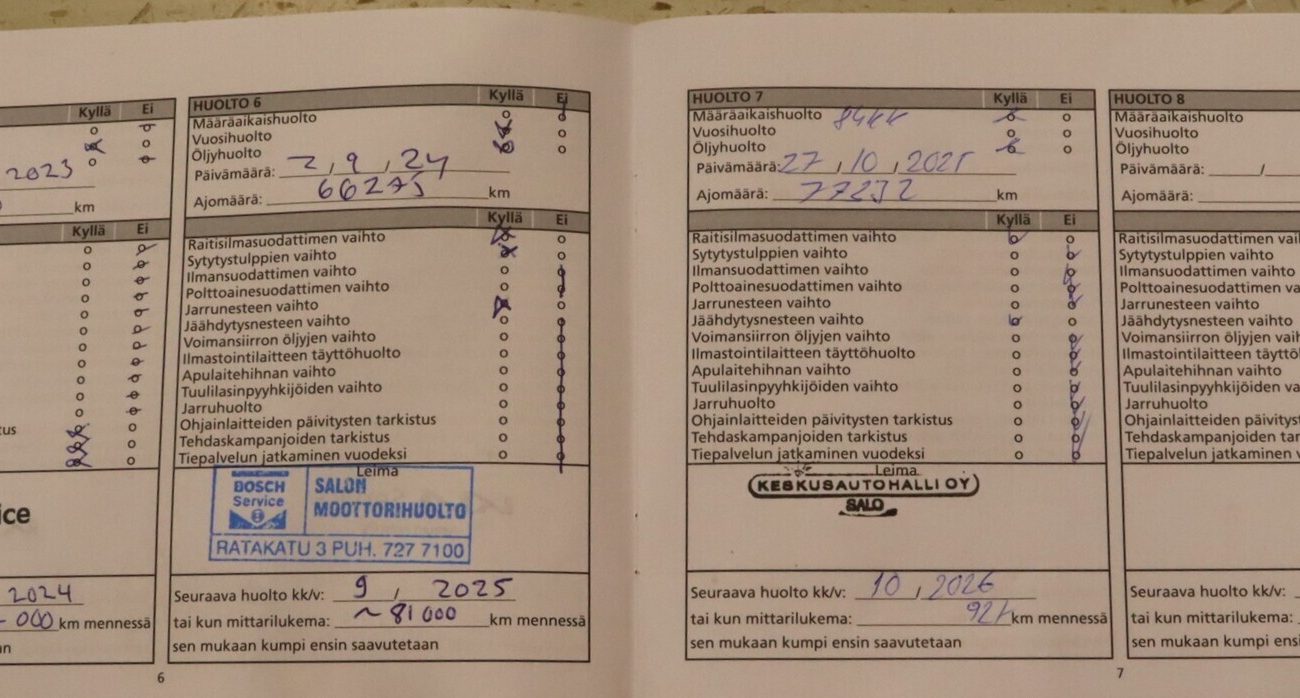 Kyllä Ei
2023
km
Kyllä Ei
ice
2024
000 km mennessä
HUOLTO 6 Kyllä Ei
Määräaikaishuolto
Vuosihuolto
Öljyhuolto
Päivämäärä: 2, 9, 24
Ajomäärä: 66275 km
Kyllä Ei
Raitisilmasuodattimen vaihto
Sytytystulppien vaihto
Ilmansuodattimen vaihto
Polttoainesuodattimen vaihto
Jarrunesteen vaihto
Jäähdytysnesteen vaihto
Voimansiirron öljyjen vaihto
Ilmastointilaitteen täyttöhuolto
Apulaitehihnan vaihto
Tuulilasinpyyhkijöiden vaihto
Jarruhuolto
Ohjainlaitteiden päivitysten tarkistus
Tehdaskampanjoiden tarkistus
Tiepalvelun jatkaminen vuodeksi
Leima
BOSCH Service
SALON MOOTTORIHUOLTO
RATAKATU 3 PUH. 727 7100
Seuraava huolto kk/v: 9, 2025
tai kun mittarilukema: ~81000 km mennessä
sen mukaan kumpi ensin saavutetaan
6
HUOLTO 7 Kyllä Ei
Määräaikaishuolto 84KK
Vuosihuolto
Öljyhuolto
Päivämäärä: 27, 10, 2025
Ajomäärä: km
Kyllä Ei
Raitisilmasuodattimen vaihto
Sytytystulppien vaihto
Ilmansuodattimen vaihto
Polttoainesuodattimen vaihto
Jarrunesteen vaihto
Jäähdytysnesteen vaihto
Voimansiirron öljyjen vaihto
Ilmastointilaitteen täyttöhuolto
Apulaitehihnan vaihto
Tuulilasinpyyhkijöiden vaihto
Jarruhuolto
Ohjainlaitteiden päivitysten tarkistus
Tehdaskampanjoiden tarkistus
Tiepalvelun jatkaminen vuodeksi
Leima
KESKUSAUTOHALLI OY
SALO
Seuraava huolto kk/v: 10, 2026
tai kun mittarilukema: km mennessä
sen mukaan kumpi ensin saavutetaan
7
HUOLTO 8
Määräaikaishuolto
Vuosihuolto
Öljyhuolto
Päivämäärä: /
Ajomäärä:
Raitisilmasuodattimen vai
Sytytystulppien vaihto
Ilmansuodattimen vaihto
Polttoainesuodattimen va
Jarrunesteen vaihto
Jäähdytysnesteen vaihto
Voimansiirron öljyjen vaih
Ilmastointilaitteen täyttö
Apulaitehihnan vaihto
Tuulilasinpyyhkijöiden va
Jarruhuolto
Ohjainlaitteiden päivityst
Tehdaskampanjoiden tar
Tiepalvelun jatkaminen v
Seuraava huolto kk/v:
tai kun mittarilukema:
sen mukaan kumpi ens